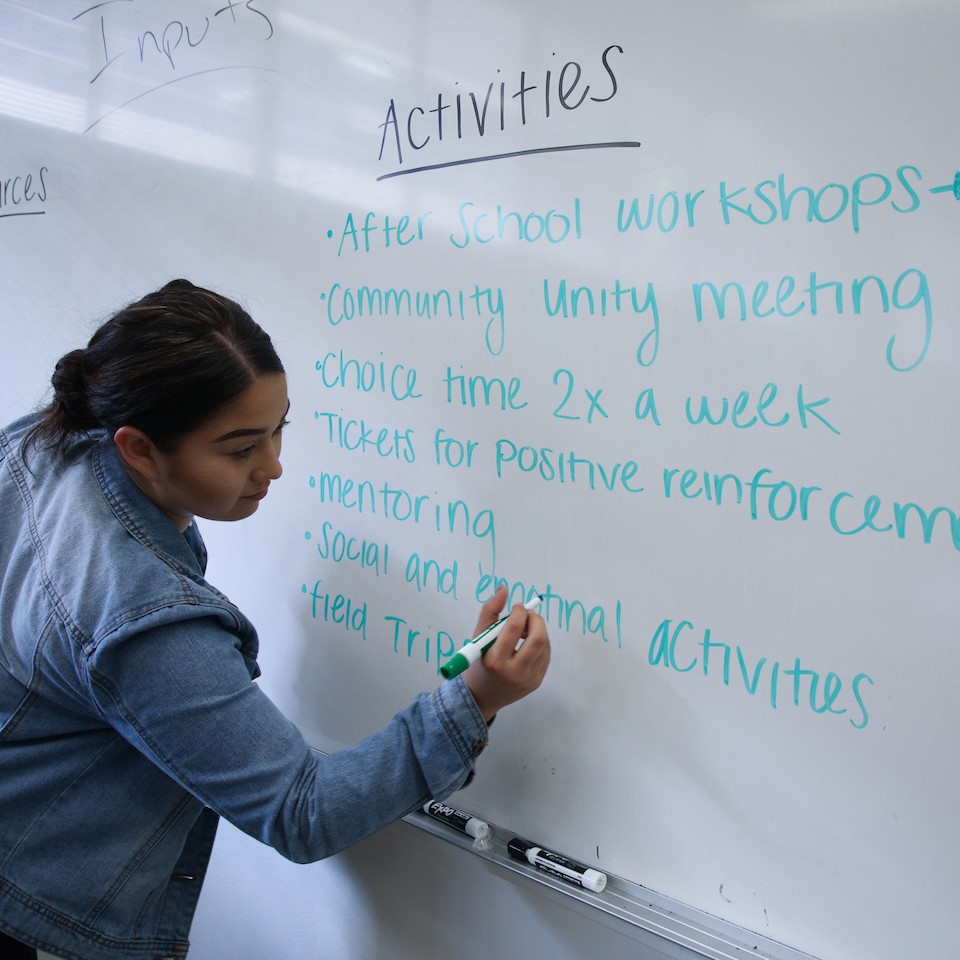 Inputs
Activities
rces
• After School workshops -
• community unity meeting
• Choice time 2x a week
• Tickets for positive reinforcem
• mentoring
• Social and emotinal activities
• field Trips
EXPO